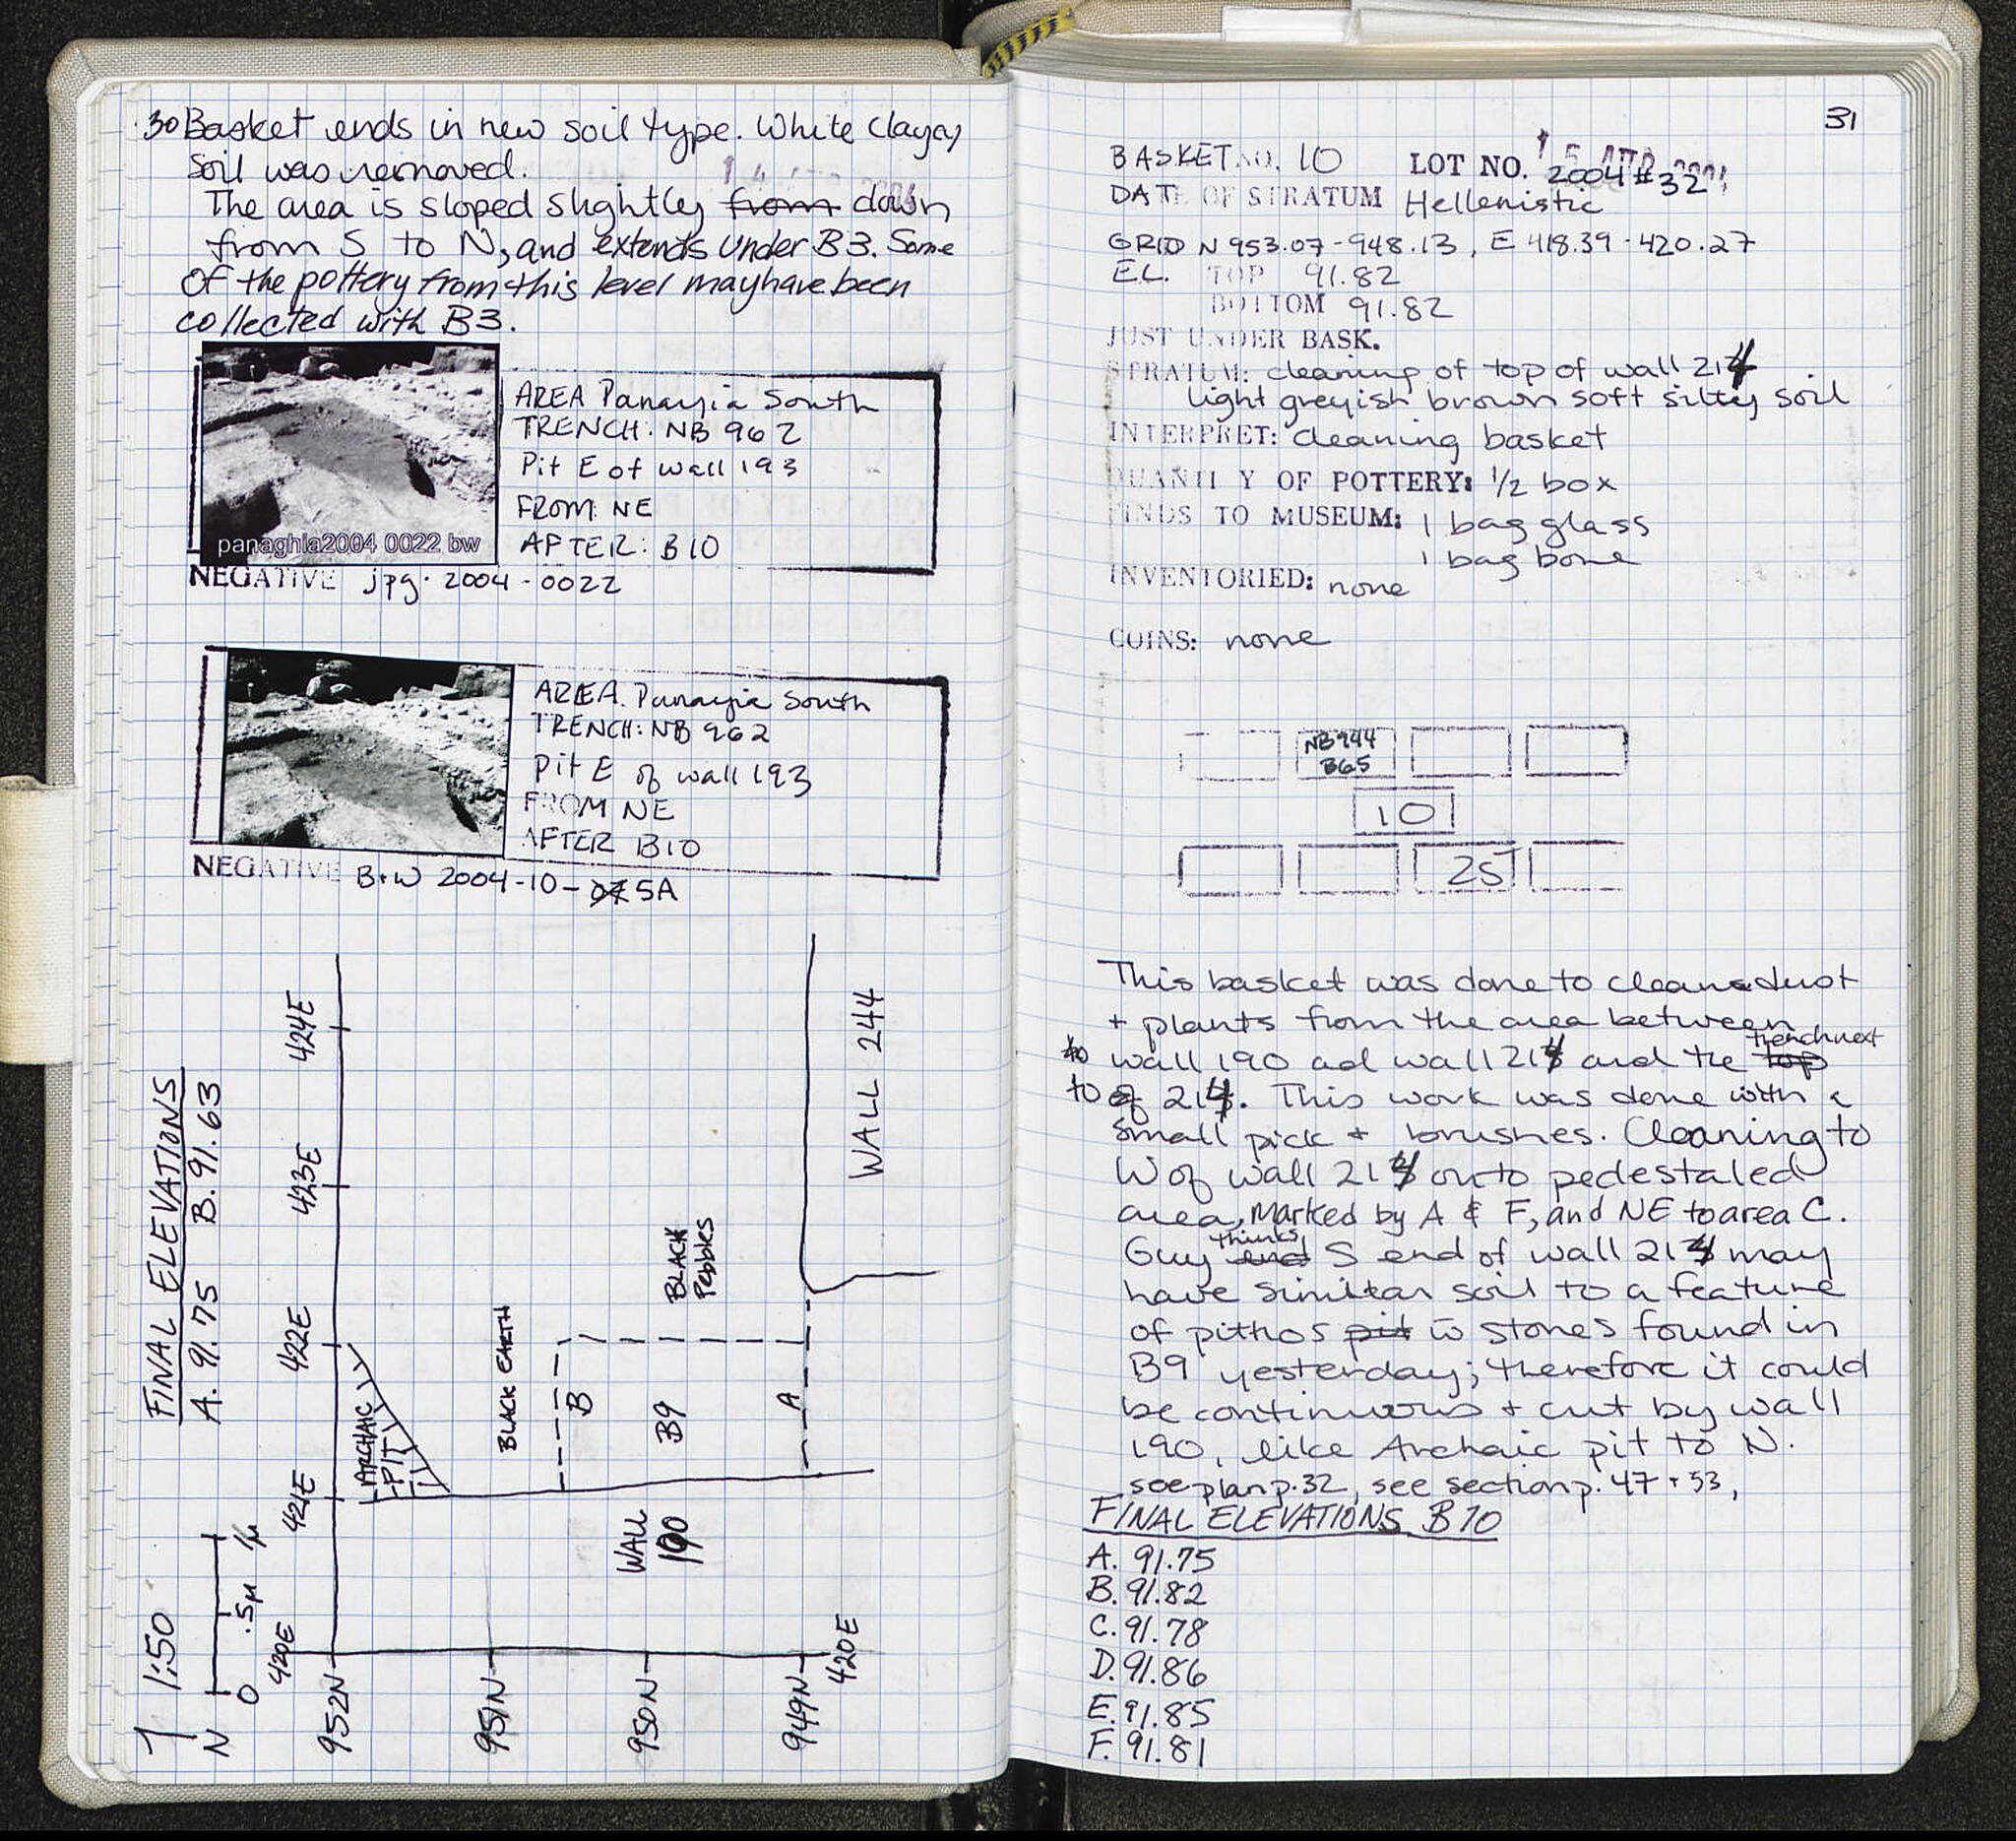 30 Basket ends in new soil type. White clayey
soil was removed.
The area is sloped slightly from down
from S to N, and extends under B3. Some
of the pottery from this level may have been
collected with B3.
AREA Panayia South
TRENCH: NB 962
Pit E of wall 193
FROM NE
AFTER: B10
panaghia2004 0022 bw
NEGATIVE jpg. 2004-0022
AREA. Panayia South
TRENCH: NB 962
pit E of wall 193
FROM NE
AFTER B10
NEGATIVE B+W 2004-10- 5A
FINAL ELEVATIONS
A. 91.75 B. 91.63
1:50
N
0 .5M 1M
420E 421E 422E 423E 424E
952N 951N 950N 949N
420E
ARCHAIC
PIT
BLACK EARTH
B
B9
BLACK
Pebbles
A
WALL 244
WALL
190
31
BASKET NO. 10 LOT NO. 2004#32
DATE OF STRATUM Hellenistic
GRID N 953.07-948.13, E 418.39-420.27
EL. TOP 91.82
BOTTOM 91.82
JUST UNDER BASK.
STRATUM: cleaning of top of wall 214
light greyish brown soft silty soil
INTERPRET: cleaning basket
QUANTITY OF POTTERY: 1/2 box
FINDS TO MUSEUM: 1 bag glass
1 bag bone
INVENTORIED: none
COINS: none
NB944
B65
10
25
This basket was done to clean dust
+ plants from the area between
to wall 190 ad wall 214 and the top trench next
to of 214. This work was done with a
small pick + brushes. Cleaning to
W of wall 214 onto pedestaled
area, marked by A & F, and NE to area C.
Guy end thinks S end of wall 214 may
have similar soil to a feature
of pithos pit w̄ stones found in
B9 yesterday; therefore it could
be continuous + cut by wall
190, like Archaic pit to N.
see plan p.32, see section p.47+53,
FINAL ELEVATIONS B10
A. 91.75
B. 91.82
C. 91.78
D. 91.86
E. 91.85
F. 91.81